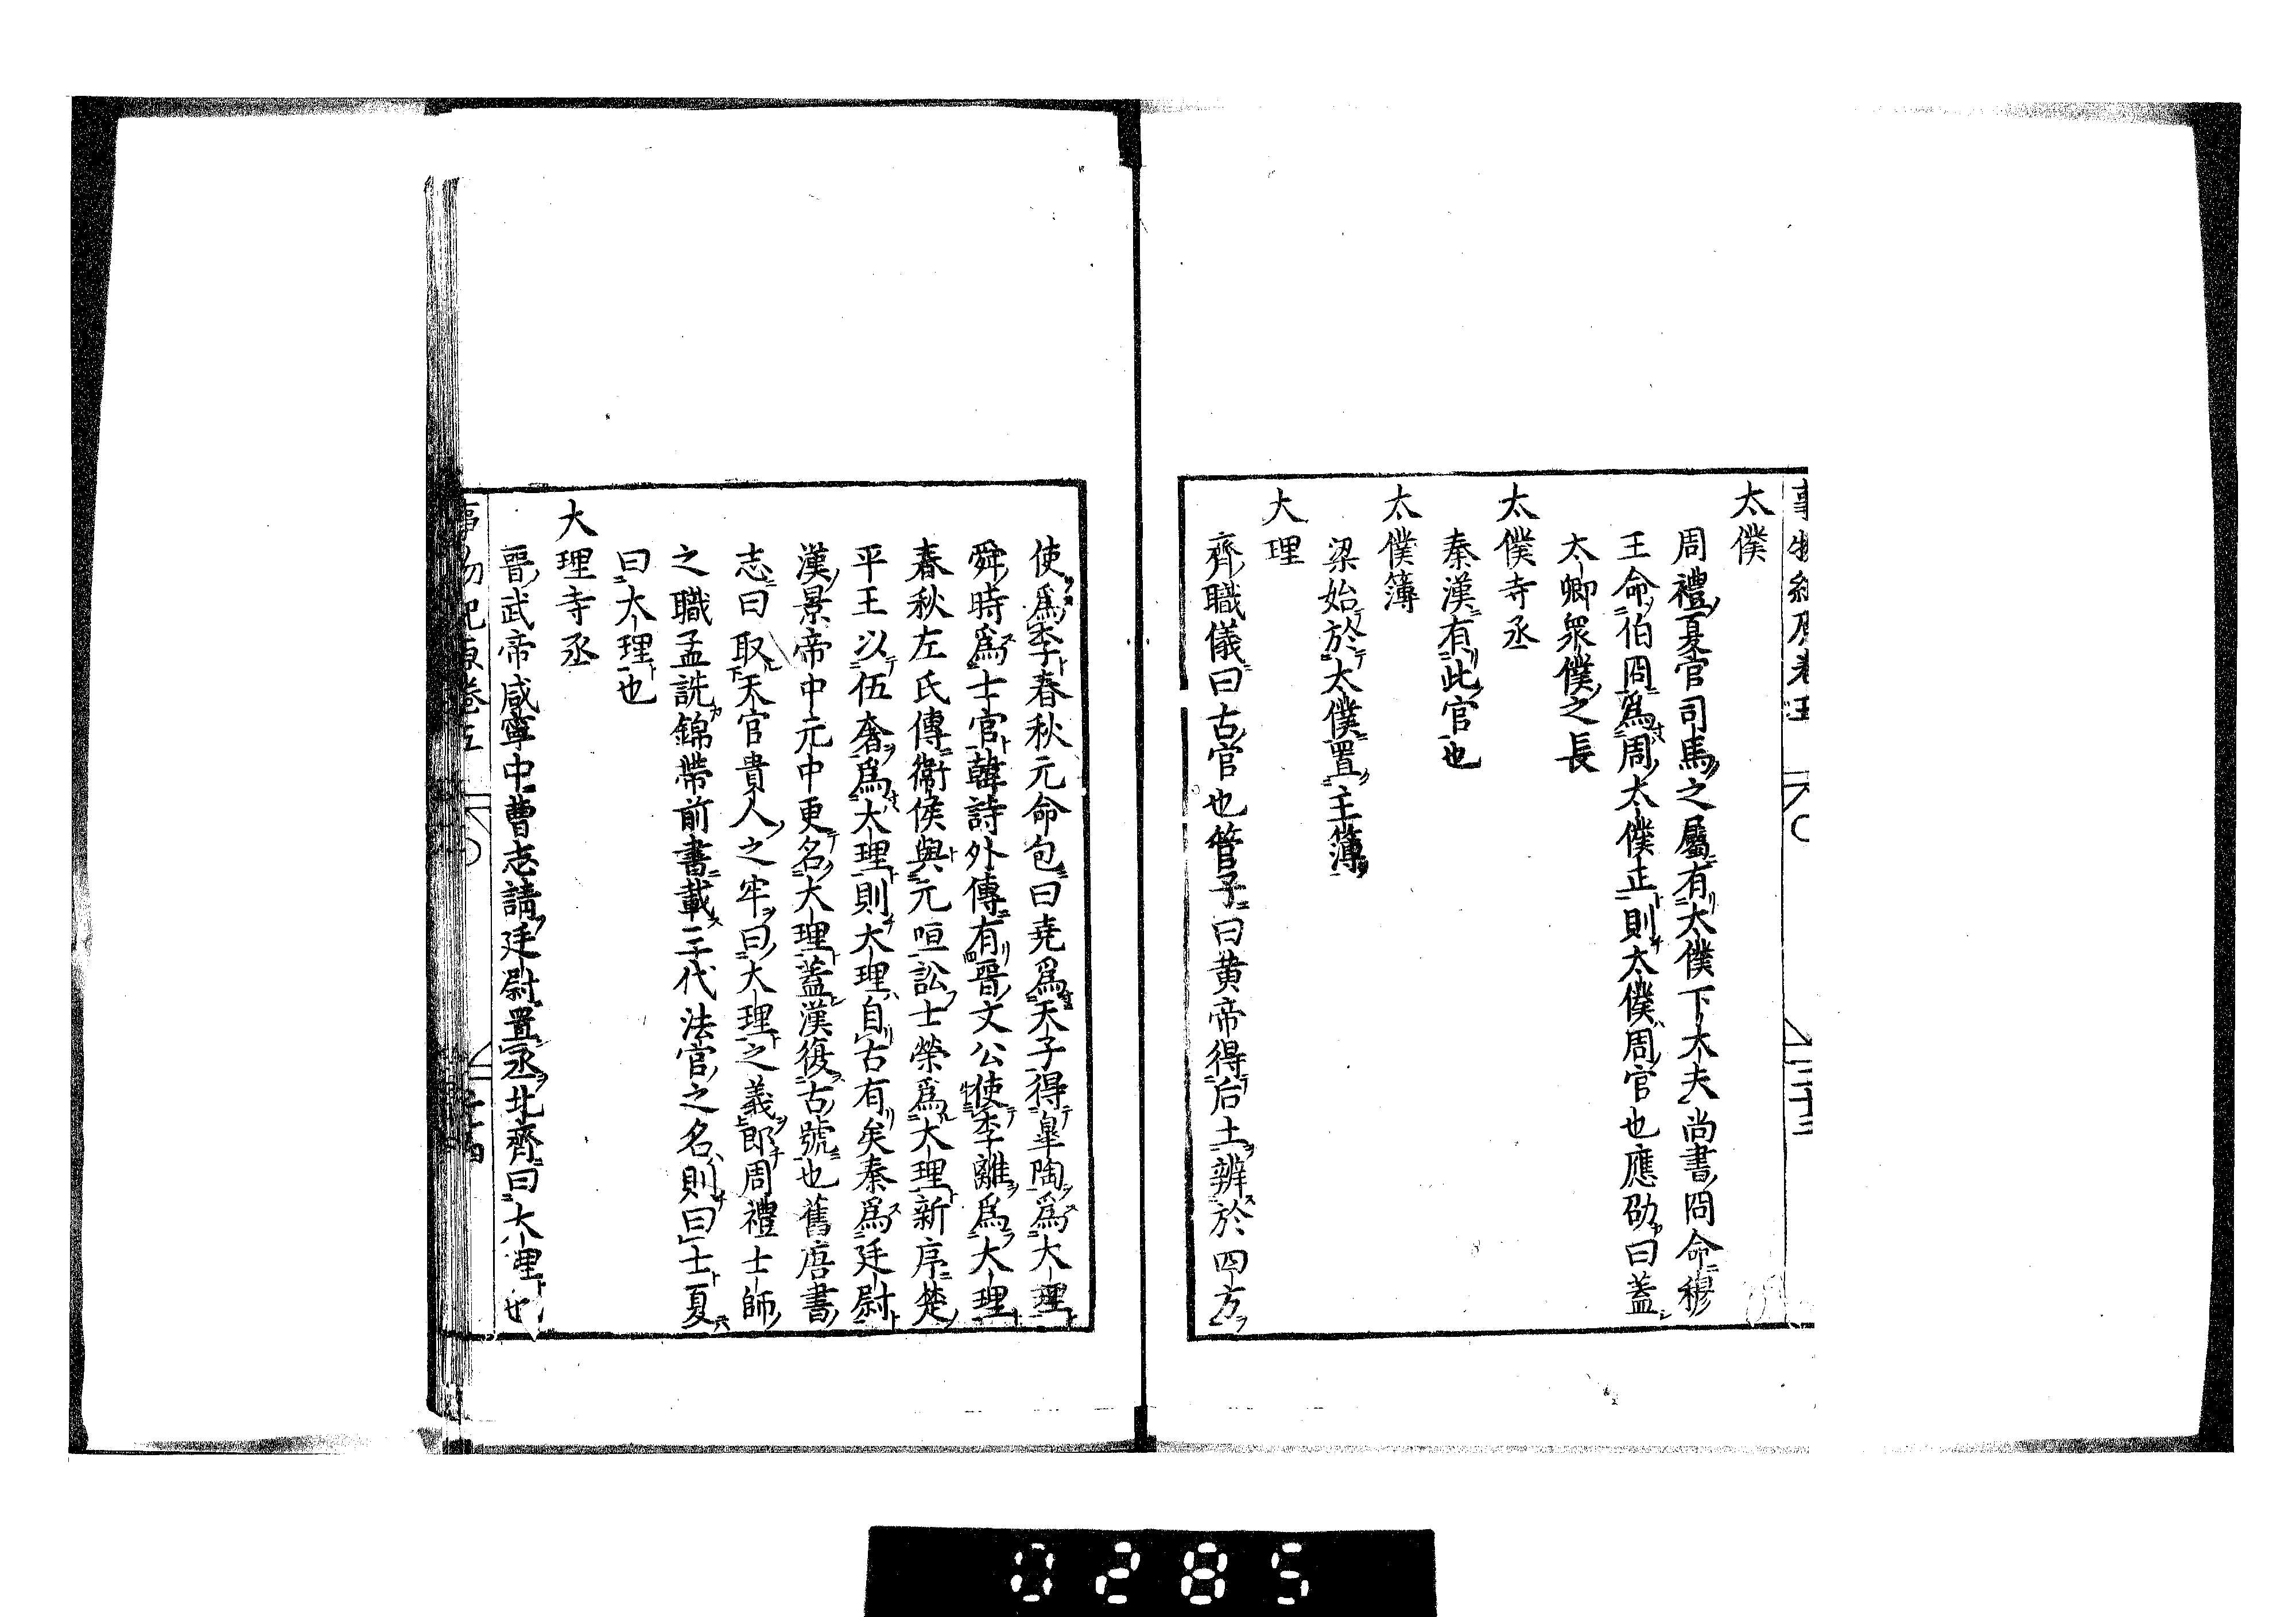 太僕
周禮夏官司馬之屬有太僕下大夫尚書冏命穆
王命伯冏爲周太僕正則太僕周官也應劭曰蓋
大卿衆僕之長
太僕寺丞
秦漢有此官也
太僕簿
梁始於太僕置主簿
大理
齊職儀曰古官也管子曰黄帝得后土辨於四方
使爲李春秋元命包曰堯爲天子得皐陶爲大理
舜時爲士官韓詩外傳有晋文公使李離爲大理
春秋左氏傳衛侯與元咺訟士榮爲大理新序楚
平王以伍奢爲大理則大理自古有矣秦爲廷尉
漢景帝中元中更名大理蓋漢復古號也舊唐書
志曰取天官貴人之牢曰大理之義郎周禮士師
之職孟詵錦帶前書載三代法官之名則曰士夏
曰大理也
大理寺丞
晋武帝咸寧中曹志請廷尉置丞北齊曰大理也
0285